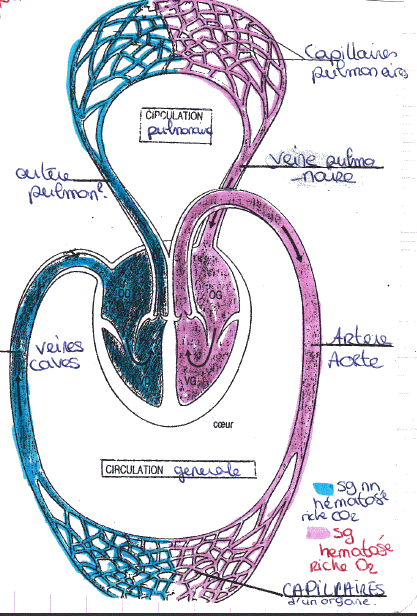 Capillaires
pulmonaires
CIRCULATION
pulmonaire
artère
pulmonre
veine pulmo
-naire
OD
OG
veines
caves
Artère
Aorte
VG
cœur
CIRCULATION generale
sg nn
hématosé
riche CO2
sg
hématosé
Riche O2
CAPILLAIRES
d'un organe